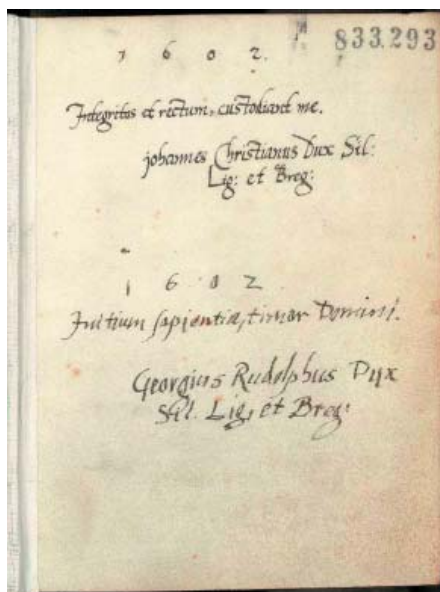 833.293
1602.
Integritas et rectum, custodiant me.
Johannes Christianus Dux Sil:
Lig: et Breg:
1602
Initium sapientiæ, timor Domini.
Georgius Rudolphus Dux
Sil. Lig, et Breg: